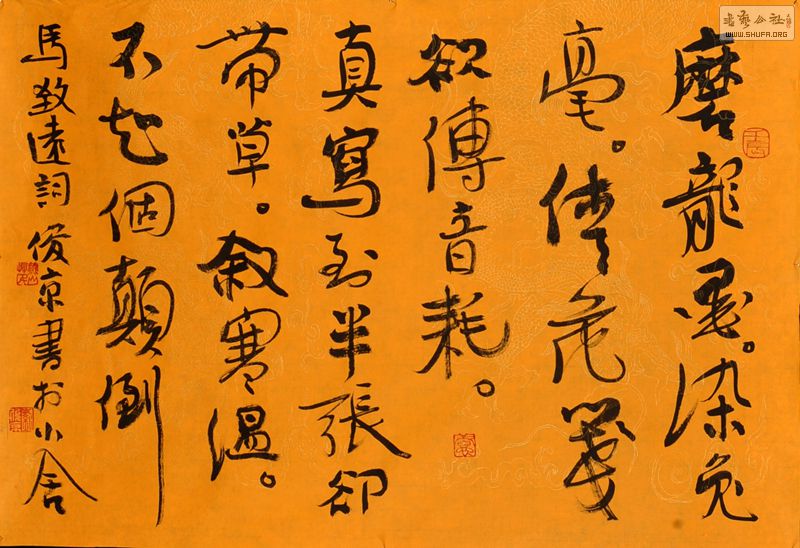 磨龍墨。染兔
毫。倩花箋
欲傳音耗。
真寫到半張卻
帶草。敘寒溫。
不知個顛倒
馬致遠詞 俊京書於小舍
書藝公社
WWW.SHUFA.ORG